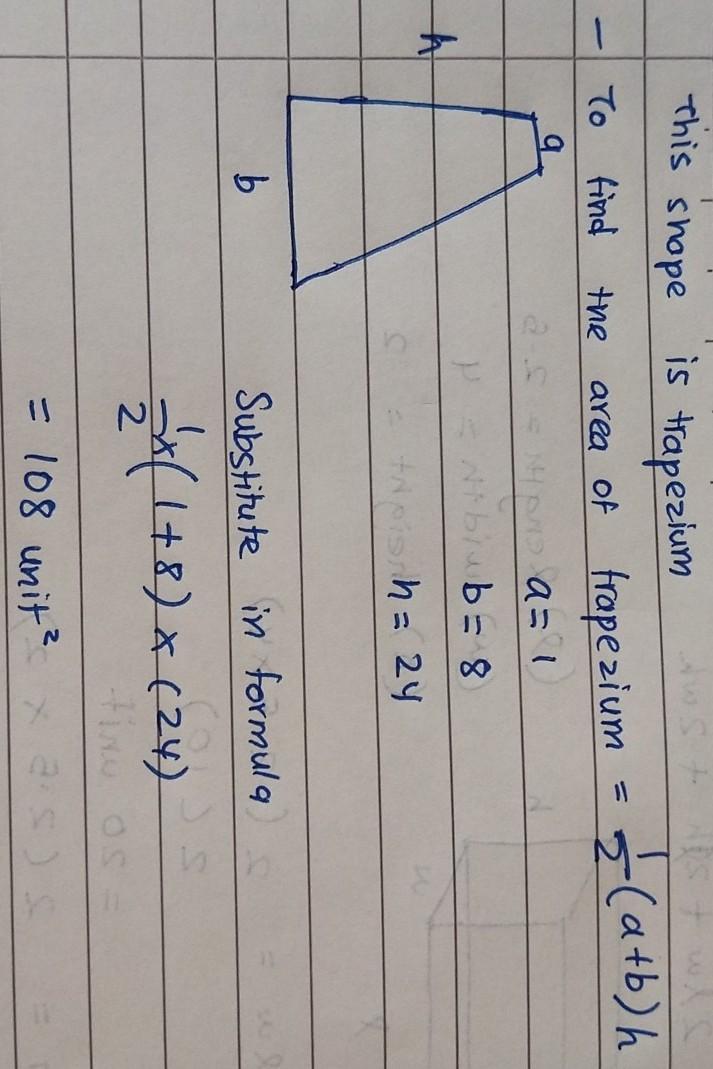 This shape is trapezium
- To find the area of trapezium = 1/2 (a+b) h
a
a = 1
b = 8
h
h = 24
b
Substitute in formula
1/2 x (1+8) x (24)
= 108 unit²